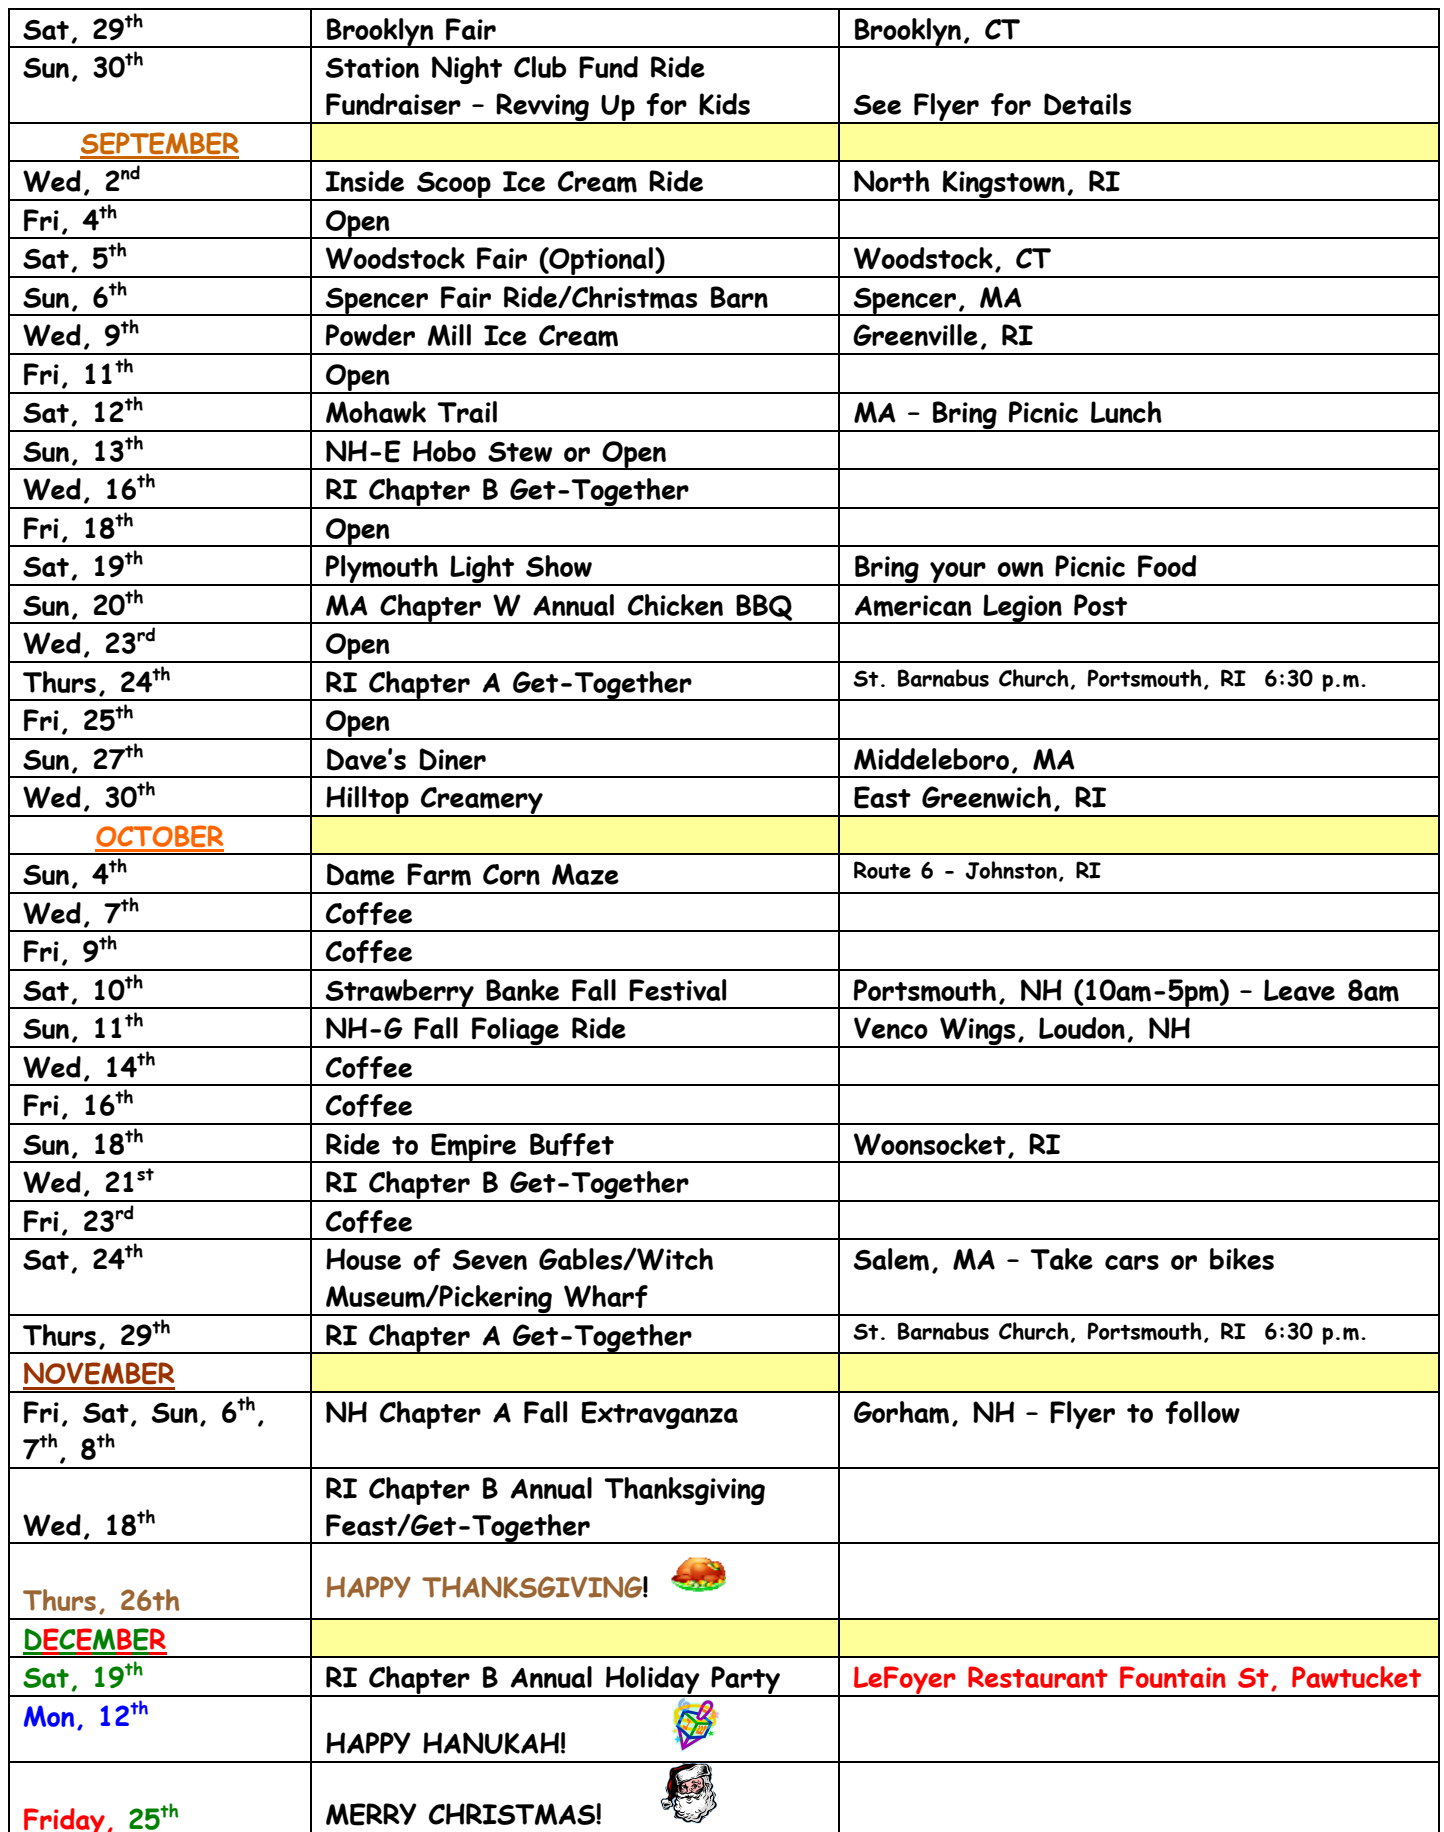 Sat, 29th Brooklyn Fair Brooklyn, CT
Sun, 30th Station Night Club Fund Ride
Fundraiser – Revving Up for Kids See Flyer for Details
SEPTEMBER
Wed, 2nd Inside Scoop Ice Cream Ride North Kingstown, RI
Fri, 4th Open
Sat, 5th Woodstock Fair (Optional) Woodstock, CT
Sun, 6th Spencer Fair Ride/Christmas Barn Spencer, MA
Wed, 9th Powder Mill Ice Cream Greenville, RI
Fri, 11th Open
Sat, 12th Mohawk Trail MA – Bring Picnic Lunch
Sun, 13th NH-E Hobo Stew or Open
Wed, 16th RI Chapter B Get-Together
Fri, 18th Open
Sat, 19th Plymouth Light Show Bring your own Picnic Food
Sun, 20th MA Chapter W Annual Chicken BBQ American Legion Post
Wed, 23rd Open
Thurs, 24th RI Chapter A Get-Together St. Barnabus Church, Portsmouth, RI 6:30 p.m.
Fri, 25th Open
Sun, 27th Dave's Diner Middeleboro, MA
Wed, 30th Hilltop Creamery East Greenwich, RI
OCTOBER
Sun, 4th Dame Farm Corn Maze Route 6 - Johnston, RI
Wed, 7th Coffee
Fri, 9th Coffee
Sat, 10th Strawberry Banke Fall Festival Portsmouth, NH (10am-5pm) – Leave 8am
Sun, 11th NH-G Fall Foliage Ride Venco Wings, Loudon, NH
Wed, 14th Coffee
Fri, 16th Coffee
Sun, 18th Ride to Empire Buffet Woonsocket, RI
Wed, 21st RI Chapter B Get-Together
Fri, 23rd Coffee
Sat, 24th House of Seven Gables/Witch Salem, MA – Take cars or bikes
Museum/Pickering Wharf
Thurs, 29th RI Chapter A Get-Together St. Barnabus Church, Portsmouth, RI 6:30 p.m.
NOVEMBER
Fri, Sat, Sun, 6th, NH Chapter A Fall Extravganza Gorham, NH – Flyer to follow
7th, 8th
RI Chapter B Annual Thanksgiving
Wed, 18th Feast/Get-Together
HAPPY THANKSGIVING!
Thurs, 26th
DECEMBER
Sat, 19th RI Chapter B Annual Holiday Party LeFoyer Restaurant Fountain St, Pawtucket
Mon, 12th
HAPPY HANUKAH!
Friday, 25th MERRY CHRISTMAS!